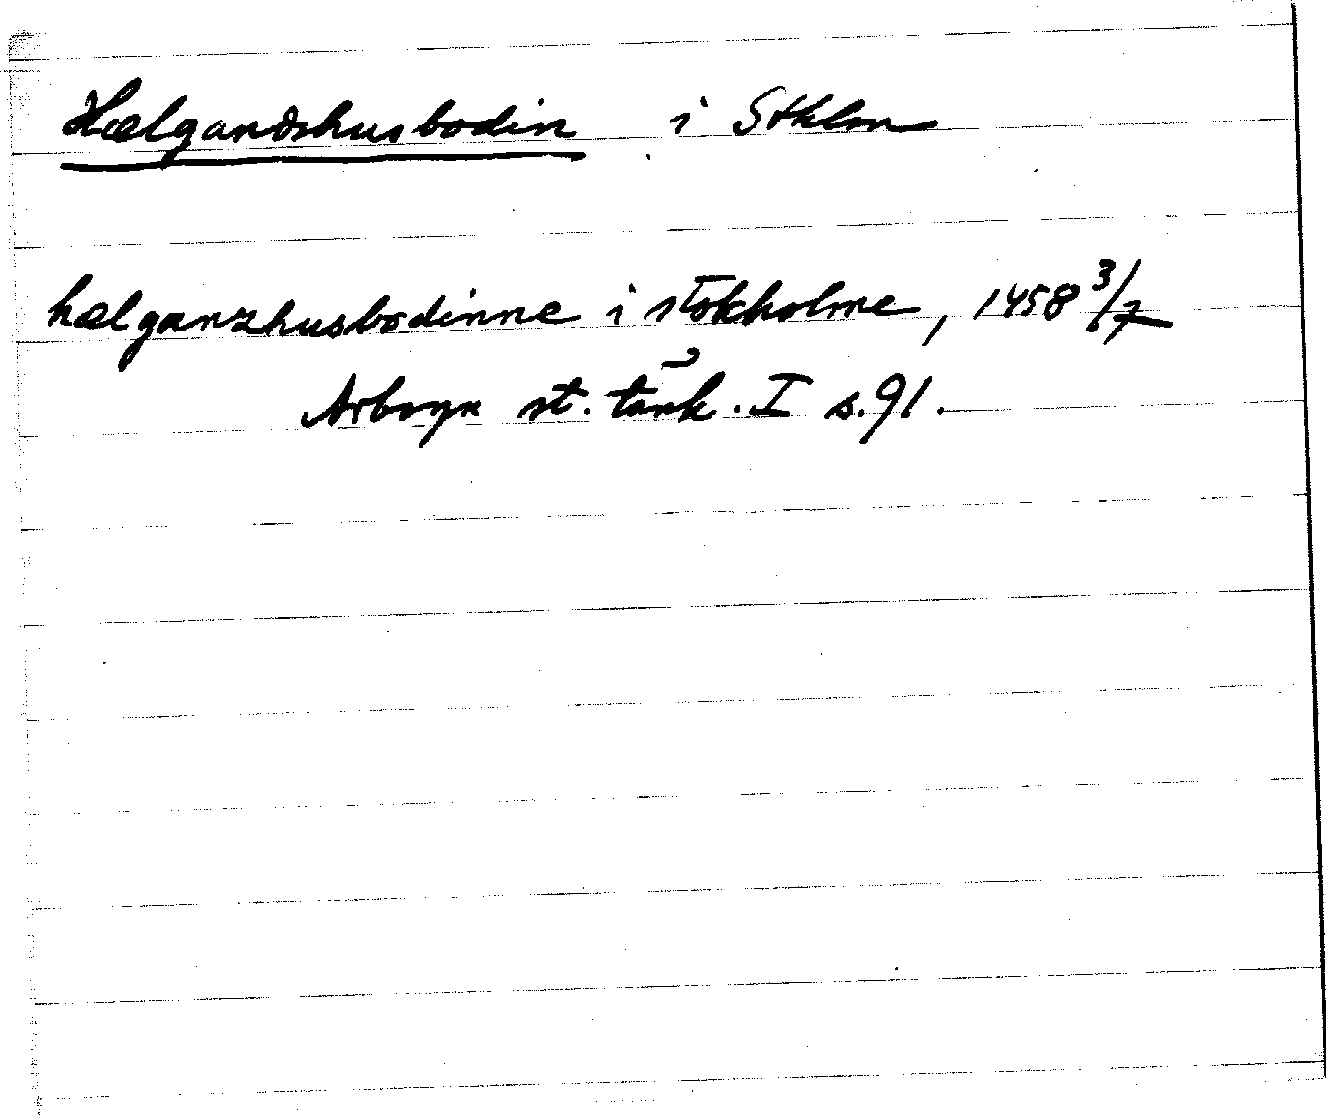 Hælgandshusbodin i Sthlm
hælganzhusbodinne i stokholme, 1458 3/7
Arboga st. tänk. I s. 91.